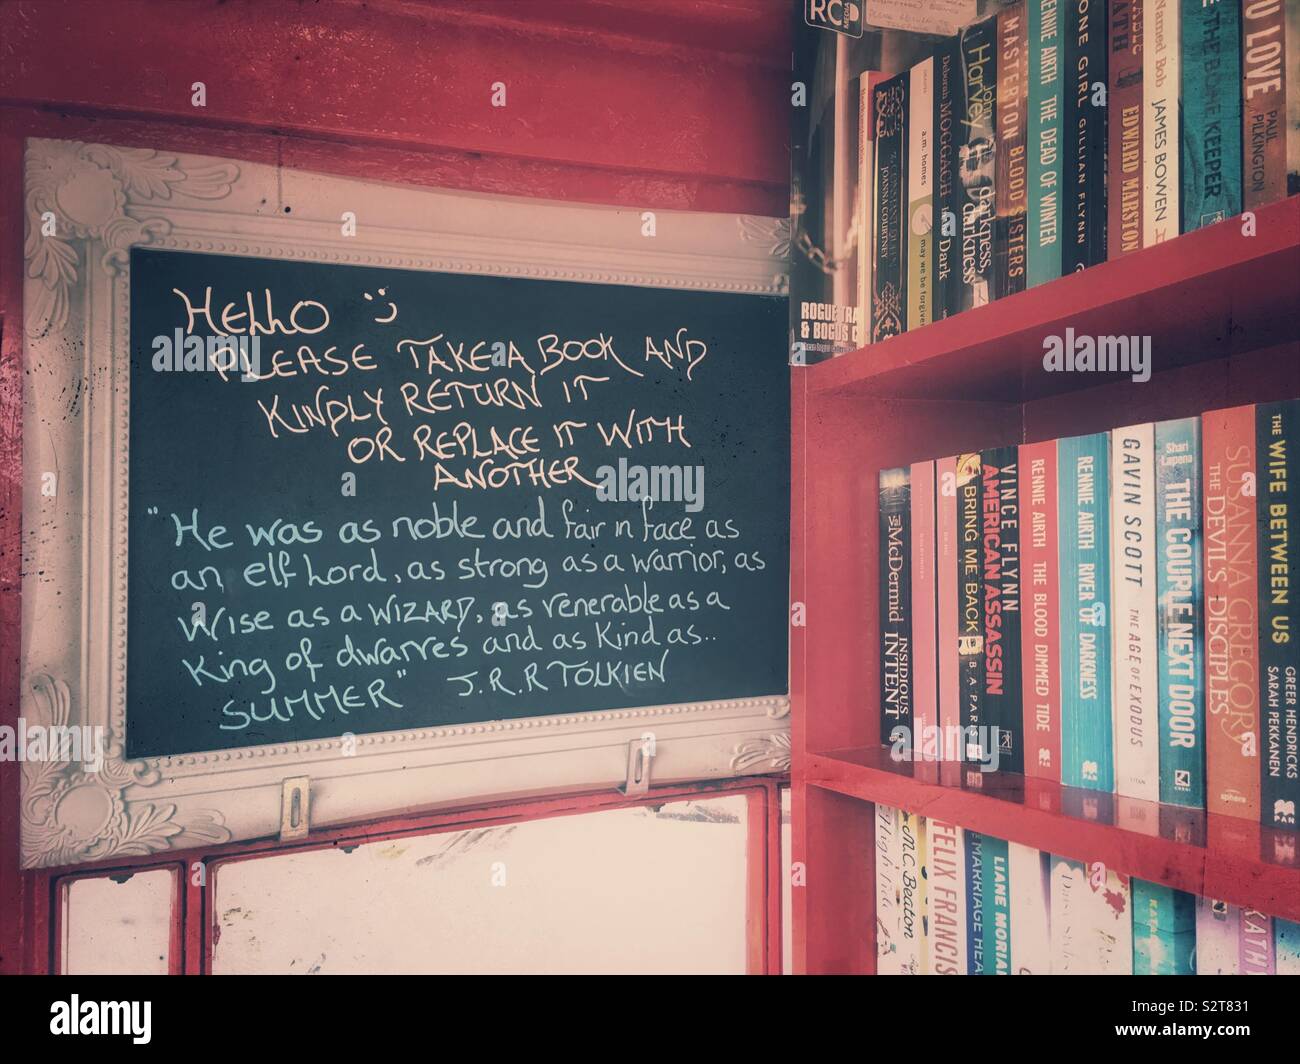 HELLO
PLEASE TAKE A BOOK AND
KINDLY RETURN IT
OR REPLACE IT WITH
ANOTHER
"He was as noble and fair in face as
an elf Lord, as strong as a warrior, as
Wise as a WIZARD, as venerable as a
King of dwarves and as Kind as..
SUMMER" J.R.R TOLKIEN
ROGUE TRA
& BOGUS
JOANNA COURTNEY
a.m. homes may we be forgiven
Deborah MOGGACH in the Dark
John Harvey darkness, darkness
MASTERTON BLOOD SISTERS
RENNIE AIRTH THE DEAD OF WINTER
GONE GIRL GILLIAN FLYNN
EDWARD MARSTON
Named Bob JAMES BOWEN
THE BONE KEEPER
U LOVE PAUL PILKINGTON
Val McDERMID INSIDIOUS INTENT
BRING ME BACK B. A. PARIS
VINCE FLYNN AMERICAN ASSASSIN
RENNIE AIRTH THE BLOOD DIMMED TIDE PAN
RENNIE AIRTH RIVER OF DARKNESS PAN
GAVIN SCOTT THE AGE OF EXODUS TITAN
Shari Lapena THE COUPLE NEXT DOOR CORGI
SUSANNA GREGORY THE DEVIL'S DISCIPLES sphere
THE WIFE BETWEEN US GREER HENDRICKS SARAH PEKKANEN PAN
High Tide
M.C. Beaton
FELIX FRANCIS
MARRIAGE
LIANE MORIAR
KATH
alamy
S2T831 www.alamy.com